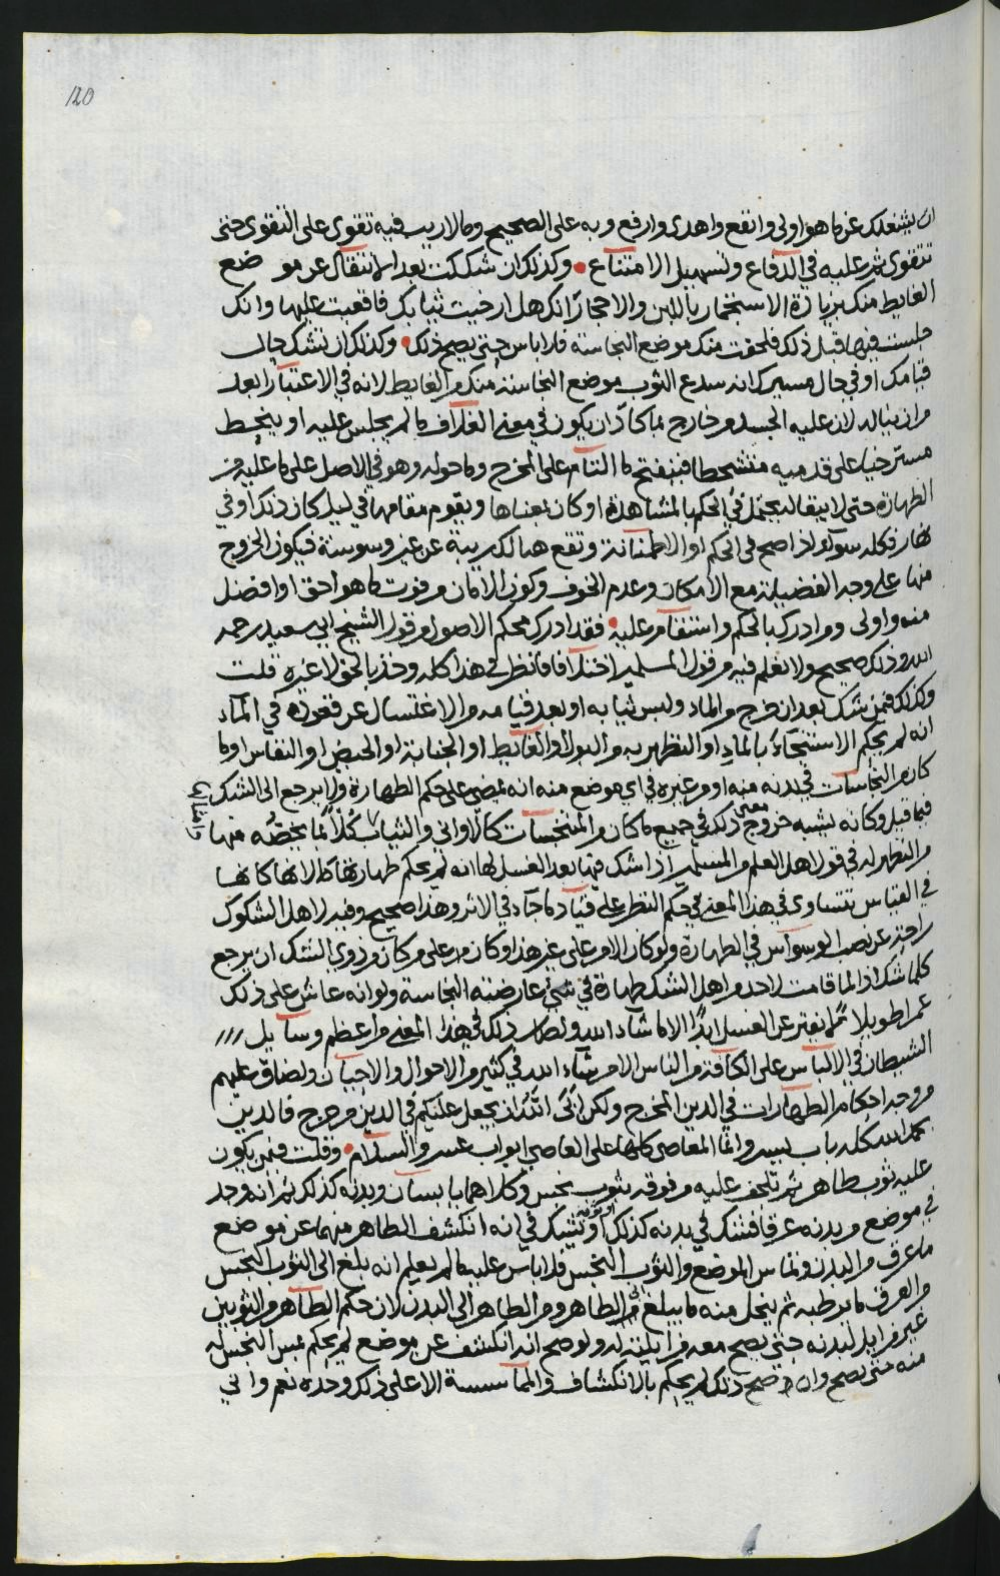 120
ان يشغلك عن ما هو اولى وانفع واهدى وارفع وبه على الصحيح ومالا ريب فيه تقوى على التقوى حتى
تتقوى ثم عليه في الدفاع وتسهيل الامتناع وكذلك ان شككت بعد الانتقال عن موضع
الغايط منك بزيادة الاستخمار باللبن والاحجار انك هل ارخيت ثيابك فاقعيت عليها وانك
جلست فيها قبل ذلك فلحقت منك موضع النجاسة فلا باس حتى يصح ذلك وكذلك ان تشك حال
قيامك او في حال مسيرك انه سدع الثوب موضع النجاسة منك من الغايط لانه في الاعتبار ابعد
من ان يناله لان عليه الجسد من خارج بما كاد ان يكون في معنى الغلاف ما لم يجلس عليه او ينحط
مسترخيا على قدميه منشحطا فينفتح ما التام على المخرج وما حوله وهو في الاصل على ما عليه من
الطهارة حتى لا يبقا له يحتمل في الحكم بالمشاهدة او كان بمعناها ويقوم مقامها في ليل كان ذلك او في
نهار فكله سواء اذا صح في الحكم او الاطمئنانة وتقع هنالك ريبة عن غير وسوسة فيكون الخروج
منها على وجه الفضيلة مع الامكان وعدم الخوف وكون الامان من فوت ما هو احق او افضل
منه واولى ومن ادرك بالحكم واستقام عليه فقد ادرك محكم الاصول من قول الشيخ ابي سعيد رحمه
الله وذلك صحيح ولا نعلم فيه من قول المسلمين اختلافا فانظر في هذا كله وخذ بالحق لا غيره قلت
وكذلك فمن شك بعد ان خرج من الماء ولبس ثيابه او بعد قيامه من الاغتسال عن قعوده في الماء
انه لم يحكم الاستنجاء بالماء او التطهر به من البول او الغايط او الجنابة او الحيض او النفاس او ما
كان من النجاسات في بدنه منه او من غيره في اي موضع منه انه يمضي على حكم الطهارة ولا يرجع الى الشك
فيما قبل وكانه يشبه خروج معنى ذلك في جميع ما كان من المتنجسات كالاواني والثياب كلا بما يخصه منها
من التطهر له في قول اهل العلم من المسلمين اذا شك فيها بعد الغسل لها انه لم يحكم طهارتها كلا لانها كانها
في القياس تتساوى في هذا المعنى في حكم النظر على قياد ما جاء في الاثر وهذا صحيح وفيه لاهل الشكوك
راحة عن نصب الوسواس في الطهارة ولو كان الامر على غير هذا وكان على من كان من ذوي الشك ان يرجع
كلما شك اذا لما قامت لاحد من اهل الشك طهارة في شيء عارضته النجاسة ولو انه عاش على ذلك
عمرا طويلا لم يفتر عن الغسل ابدا الا ما شاء الله ولصار ذلك في هذا المعنى من اعظم وسايل
الشيطان في الالباس على الكافة من الناس الا من شاء الله في كثير من الاحوال والاحيان ولضاق عليهم
من وجه احكام الطهارات في الدين المخرج ولكن ابى الله ان يجعل عليكم في الدين من حرج فالدين
بحمد الله كله باب يسر وانما المعاصي كلها على العاصي ابواب عسر والسلام وقلت فمن يكون
عليه ثوب طاهر ثم تلحف عليه من فوقه بثوب نجس وكلاهما يابسان وبدنه كذلك ثم انه وجد
في موضع من بدنه عرقا فشك في بدنه كذلك او ثوبه وتشك في انه انكشف الطاهر منهما عن موضع
ما عرق من البدن وتماس الموضع والثوب النجس فلا باس عليه ما لم يعلم انه بلغ الى الثوب النجس
من العرق ما يرطبه ثم ينحل منه ما يبلغ من الطاهر ومن الطاهر الى البدن لان حكم الطاهر من الثوبين
غير مزايل لبدنه حتى يصح معه مزايلته له ولو صح انه انكشف عن موضع لم يحكم بمس النجس له
منه حتى يصح وان صح ذلك لم يحكم بالانكشاف والمماسسة الا على ذلك وحده نعم واني